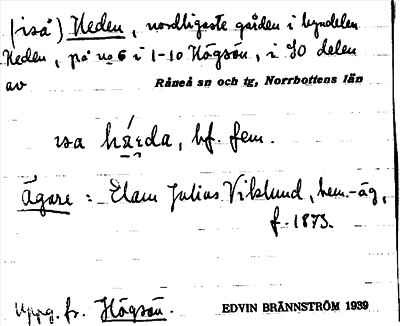 (isä) Heden, nordligaste gården i byndelen
Heden, på no 6 i 1-10 Högsön, i SO delen
av Råneå sn och tg, Norrbottens län
sa hä́rda, bf. fem.
Ägare: Elam Julius Viklund, hem.-äg,
f. 1873.
Uppg. fr. Högsön. EDVIN BRÄNNSTRÖM 1939